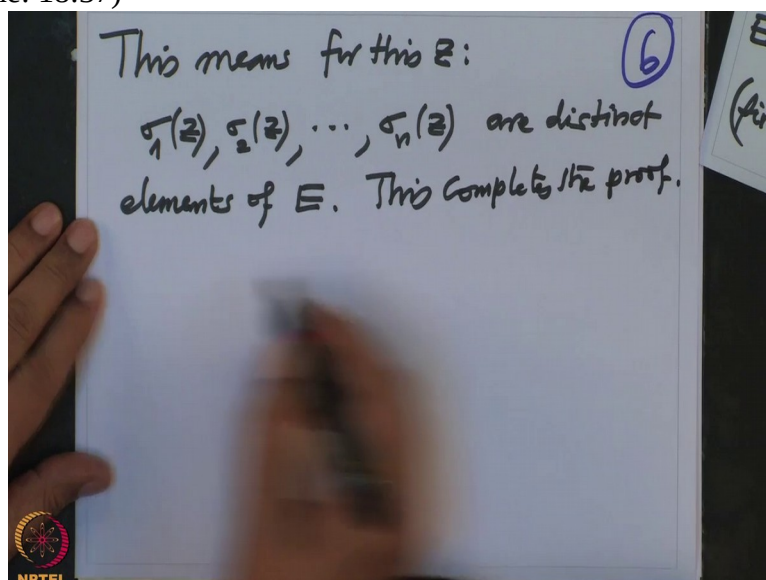 This means for this z: 6
σ₁(z), σ₂(z), ⋯, σₙ(z) are distinct
elements of E. This completes the proof.
E
NPTEL